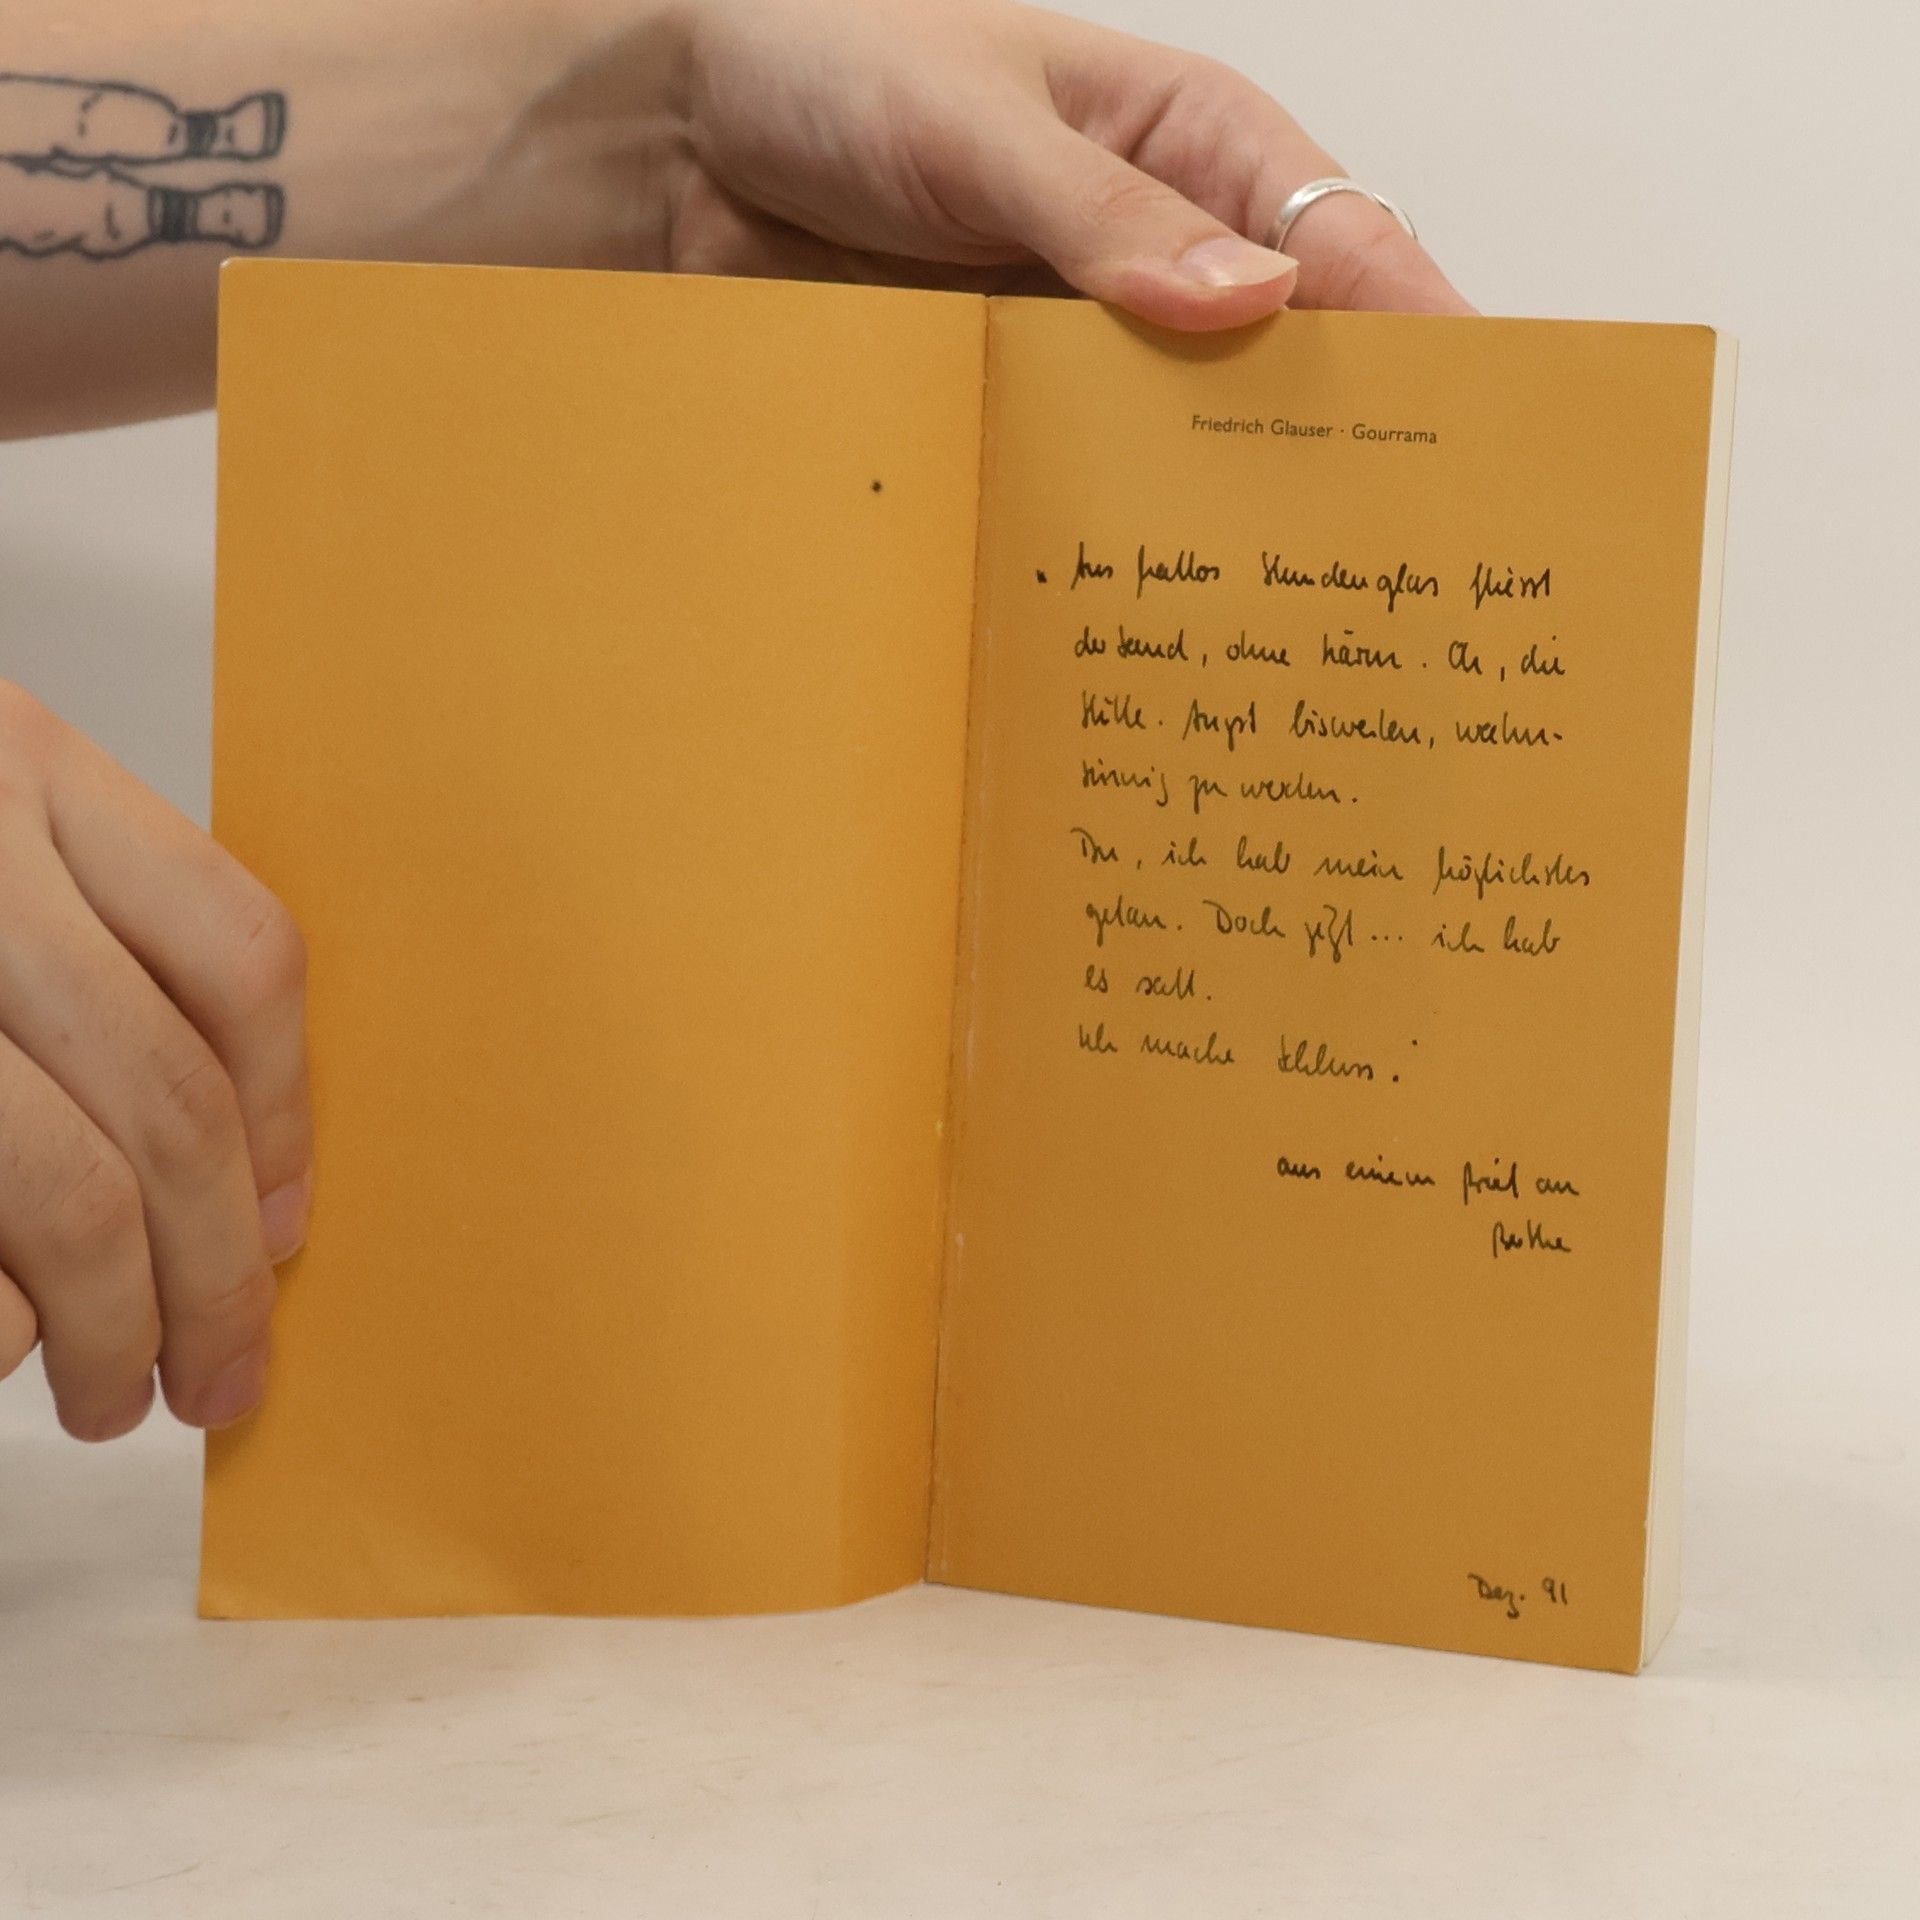 Friedrich Glauser · Gourrama
"Aus Mattos Stundenglas fliesst
der Sand, ohne Lärm. Oh, die
Stille. Angst bisweilen, wahn-
sinnig zu werden.
Du, ich hab mein Möglichstes
getan. Doch jetzt ... ich hab
es satt.
Ich mache Schluss."
aus einem Brief an
Berthe
Dez. 91